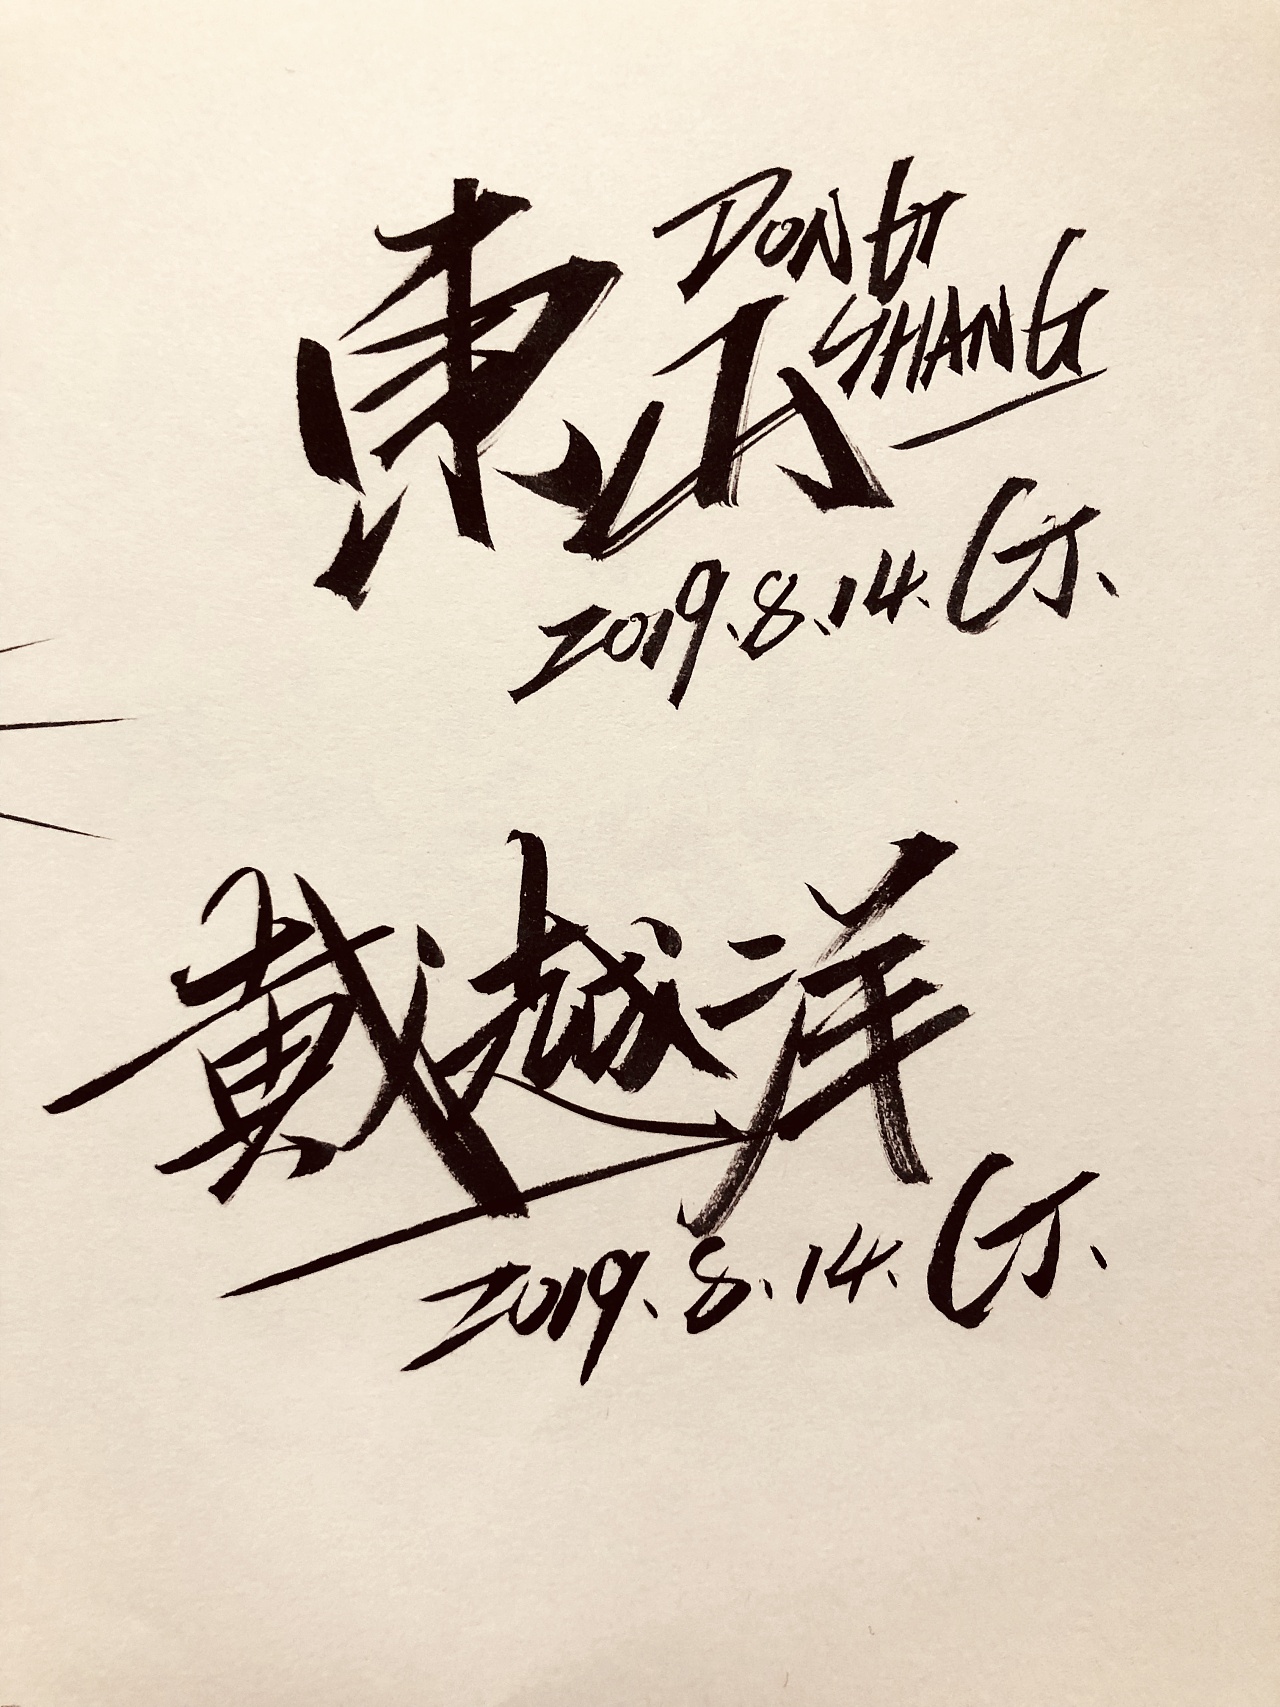 東山
DONG
SHANG
2019.8.14. GJ.
戴越洋
2019.8.14. GJ.